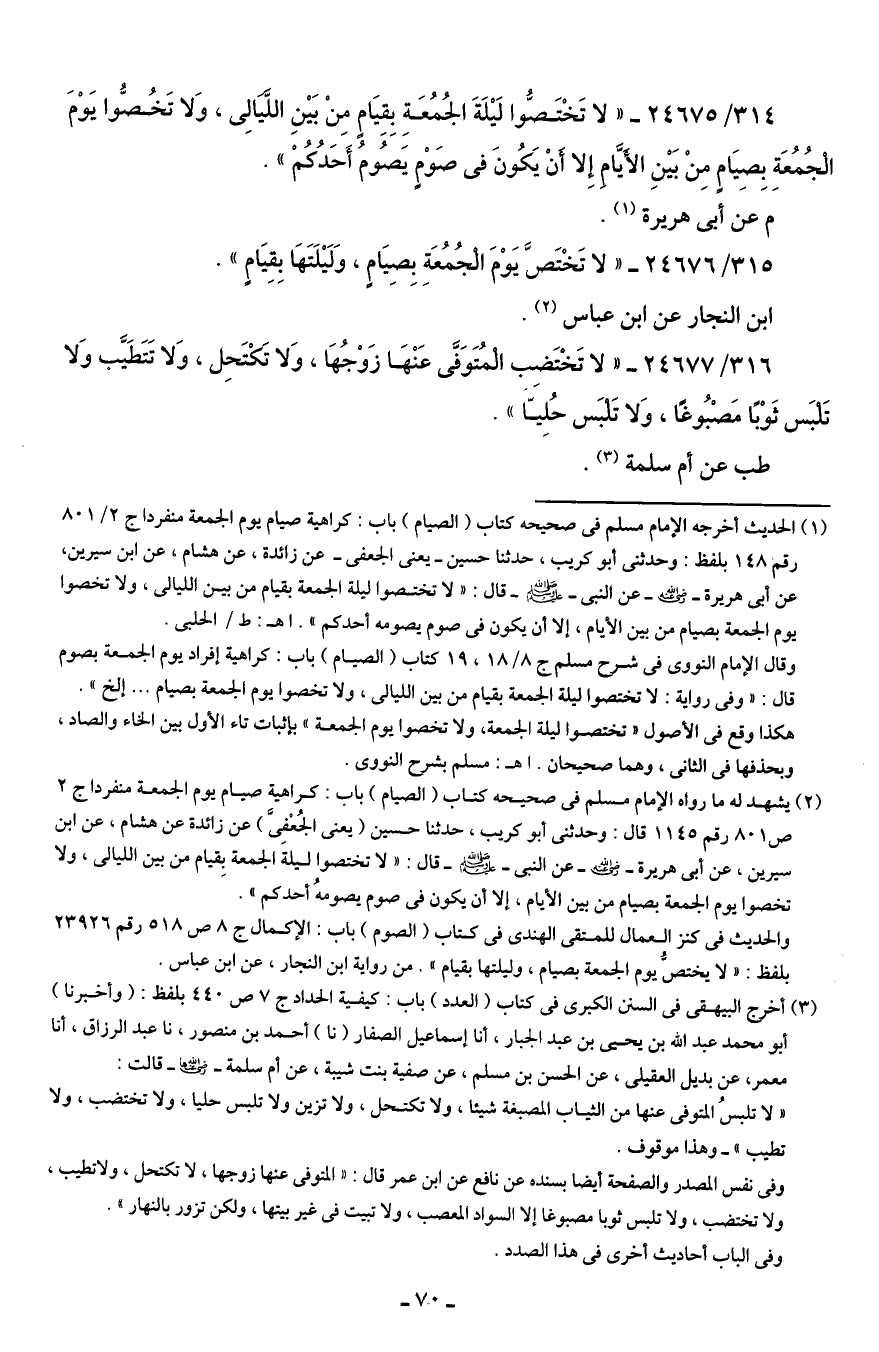 ٣١٤/ ٢٤٦٧٥ ـ « لا تَخْتَـصُّوا لَيْلَةَ الجُمُعَـةِ بِقِيَامٍ مِنْ بَيْنِ اللَّيَالِى ، وَلا تَخُـصُّوا يَوْمَ
الْجُمُعَةِ بِصِيَامٍ مِنْ بَيْنِ الأَيَّامِ إلا أنْ يَكُونَ فى صَوْمٍ يَصُومُ أَحَدُكُمْ » .
م عن أبى هريرة (١) .
٣١٥/ ٢٤٦٧٦ ـ « لا تَخْتَصَّ يَوْمَ الْجُمُعَةِ بِصِيَامٍ ، وَلَيْلَتَهَا بِقِيَامٍ » .
ابن النجار عن ابن عباس (٢) .
٣١٦/ ٢٤٦٧٧ ـ « لا تَخْتَضب المُتَوَفَّى عَنْهَـا زَوْجُهَا ، وَلا تَكْتَحل ، وَلا تَتَطَيَّب وَلا
تَلْبَس ثَوْبًا مَصْبُوغًا ، وَلا تَلْبَس حُلِيـّا » .
طب عن أم سلمة (٣) .
(١) الحديث أخرجه الإمام مسلم فى صحيحه كتاب ( الصيام ) باب : كراهية صيام يوم الجمعة منفردا ج ٢/ ٨٠١
رقم ١٤٨ بلفظ : وحدثنى أبو كريب ، حدثنا حسين ـ يعنى الجعفى ـ عن زائدة ، عن هشام ، عن ابن سيرين،
عن أبى هريرة ـ رضي الله عنه ـ عن النبى ـ ﷺ ـ قال : « لا تختـصوا ليلة الجمعة بقيام من بيـن الليالى ، ولا تخصوا
يوم الجمعة بصيام من بين الأيام ، إلا أن يكون فى صوم يصومه أحدكم » . ا هـ : ط / الحلبى .
وقال الإمام النووى فى شـرح مسلم ج ٨/ ١٨ ، ١٩ كتاب ( الصيـام ) باب : كراهية إفراد يوم الجمـعة بصوم
قال : « وفى رواية : لا تختصوا ليلة الجمعة بقيام من بين الليالى ، ولا تخصوا يوم الجمعة بصيام ... إلخ » .
هكذا وقع فى الأصول « تختصـوا ليلة الجمعة، ولا تخصوا يوم الجمعـة » بإثبات تاء الأول بين الخاء والصاد ،
وبحذفها فى الثانى ، وهما صحيحان . ا هـ : مسلم بشرح النووى .
(٢) يشهـد له ما رواه الإمام مسـلم فى صحيـحه كتـاب ( الصيام ) باب : كـراهية صيـام يوم الجمعـة منفردا ج ٢
ص٨٠١ رقم ١١٤٥ قال : وحدثنى أبو كريب ، حدثنا حـسين ( يعنى الجُعْفىَّ ) عن زائدة عن هشام ، عن ابن
سيرين ، عن أبى هريرة ـ رضي الله عنه ـ عن النبى ـ ﷺ ـ قال : « لا تختصوا لـيلة الجمعة بِقيام من بين الليالى ، ولا
تخصوا يوم الجمعة بصيام من بين الأيام ، إلا أن يكون فى صوم يصومهُ أحدكم » .
والحديث فى كنز العـمال للمـتقى الهندى فى كـتاب ( الصوم ) باب : الإكـمال ج ٨ ص ٥١٨ رقم ٢٣٩٢٦
بلفظ : « لا يختصُّ يوم الجمعة بصيام ، وليلتها بقيام » . من رواية ابن النجار ، عن ابن عباس .
(٣) أخرج البيهـقى فى السنن الكبرى فى كتاب ( العدد ) باب : كيفـية الحداد ج ٧ ص ٤٤٠ بلفظ : ( وأخـبرنا )
أبو محمد عبد الله بن يحيـى بن عبد الجبار ، أنا إسماعيل الصفار ( نا ) أحـمد بن منصور ، نا عبد الرزاق ، أنا
معمر، عن بديل العقيلى ، عن الحسن بن مسلم ، عن صفية بنت شيبة ، عن أم سلمة ـ رضي الله عنها ـ قالت :
« لا تلبسُ المتوفى عنها من الثيـاب المصبغة شيئا ، ولا تكتـحل ، ولا تزين ولا تلبس حليا ، ولا تختضب ، ولا
تطيب » ـ وهذا موقوف .
وفى نفس المصدر والصفحة أيضا بسنده عن نافع عن ابن عمر قال : « المتوفى عنها زوجها ، لا تكتحل ، ولاتطيب ،
ولا تختضب ، ولا تلبس ثوبا مصبوغا إلا السواد المعصب ، ولا تبيت فى غير بيتها ، ولكن تزور بالنهار » .
وفى الباب أحاديث أخرى فى هذا الصدد .
ـ ٧٠ ـ